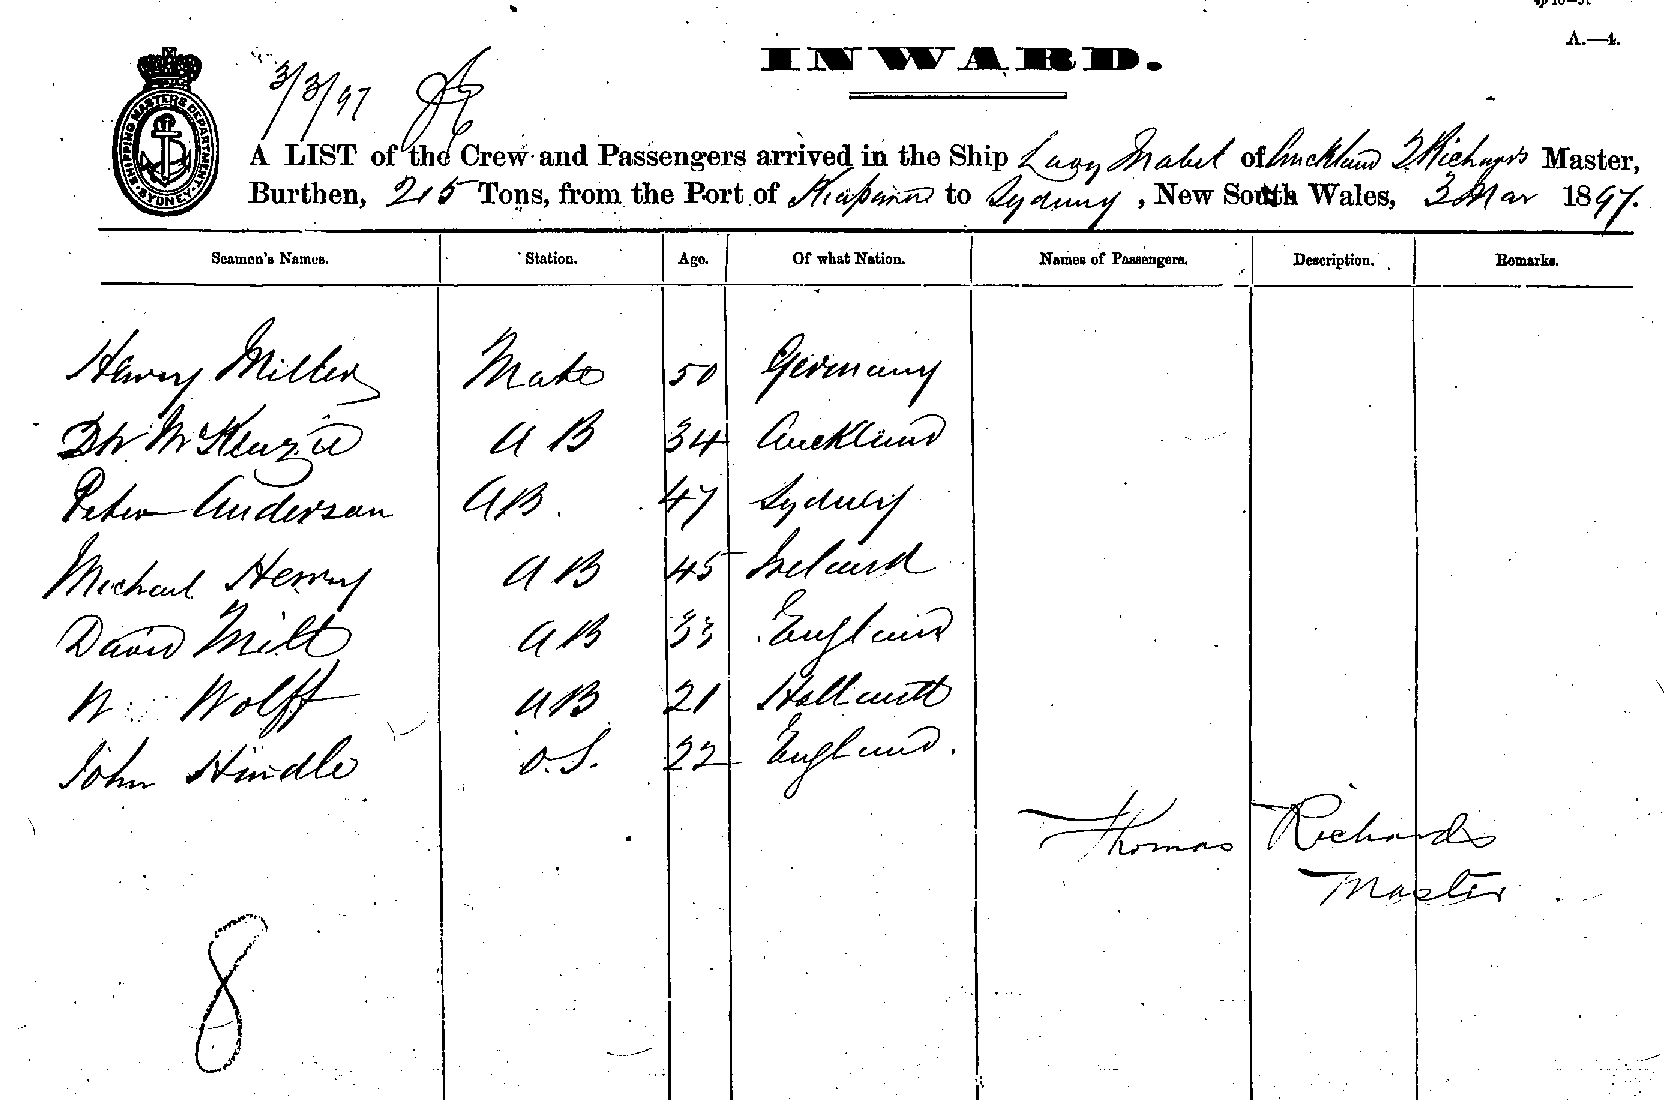 A.—4.
INWARD.
3/3/97
SHIPPING MASTERS DEPARTMENT. SYDNEY.
A LIST of the Crew and Passengers arrived in the Ship Lady Mabel of Auckland T Richards Master,
Burthen, 215 Tons, from the Port of to Sydney, New South Wales, 3 Mar 1897.
Seamen's Names. Station. Age. Of what Nation. Names of Passengers. Description. Remarks.
Henry Miller Mate 50 Germany
McKenzie A B 34 Auckland
Peter Anderson A B. 47 Sydney
Michael Henry A B 45 Ireland
David Milt A B 33 England
W Wolff A B 21 Holland
John Hindle O.S. 22 England.
Thomas Richards
Master
8